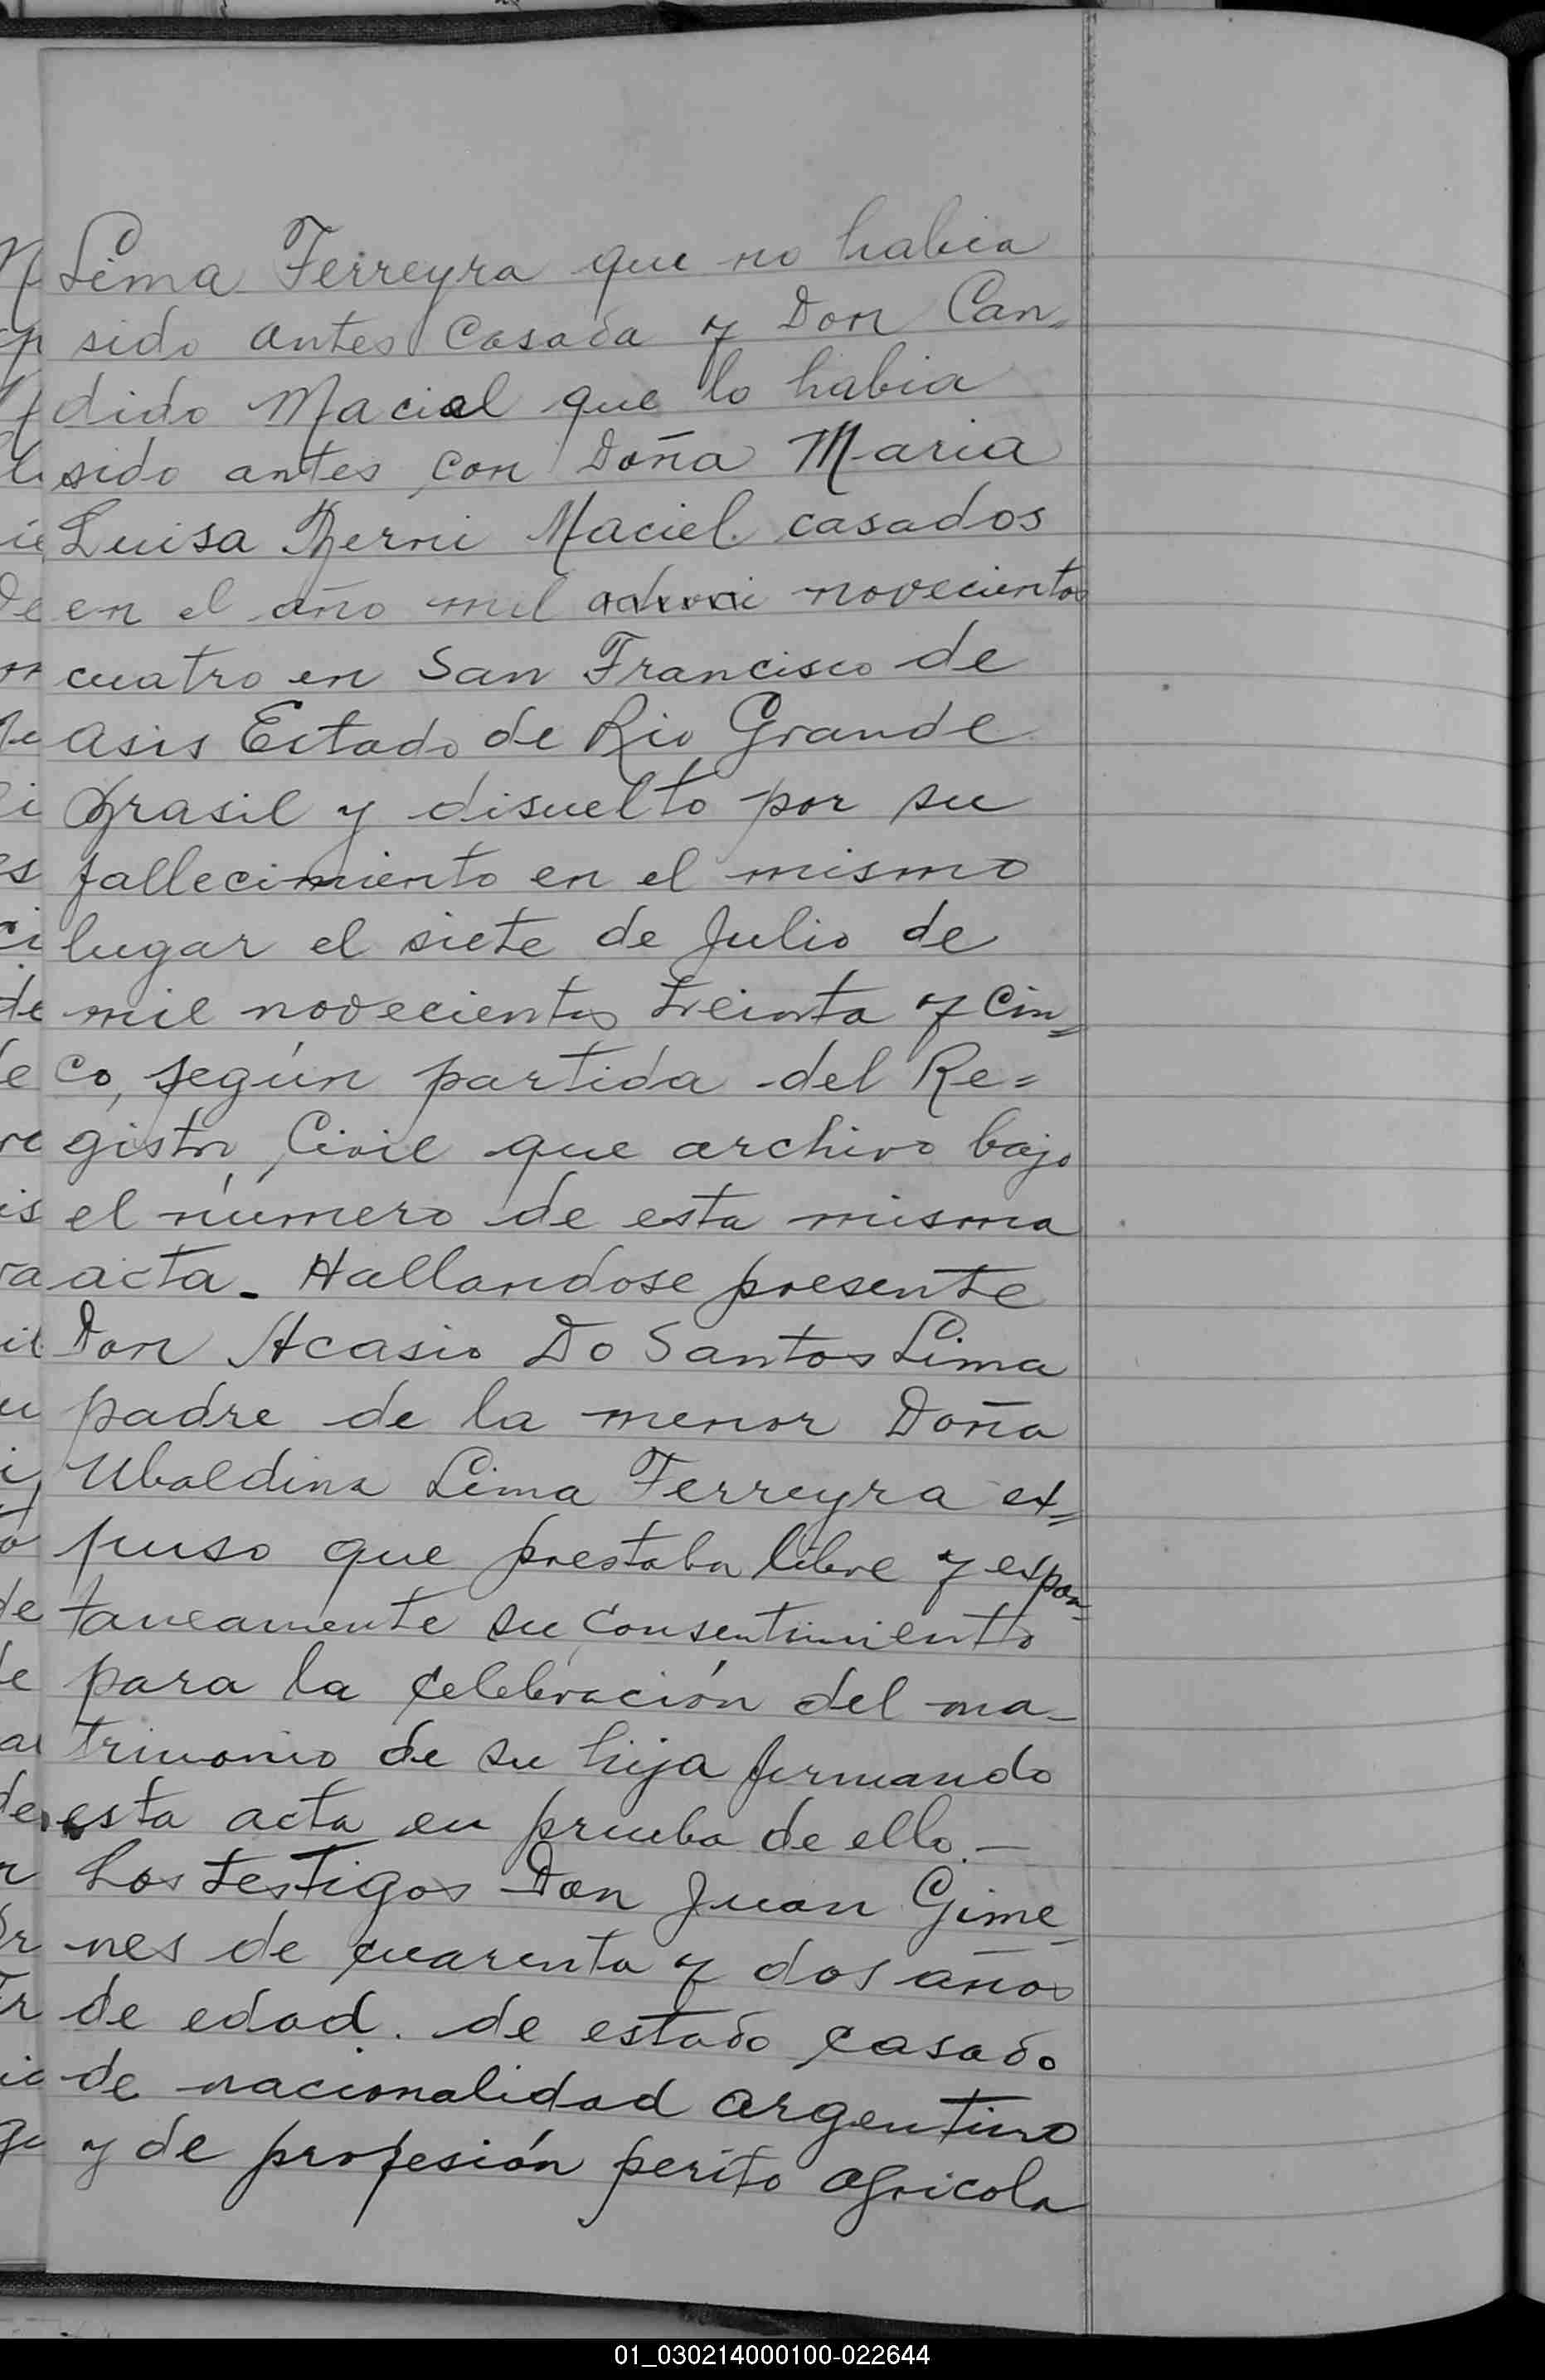 Lima Ferreyra que no habia
sido antes Casada y Don Can=
dido Macial que lo habia
sido antes con Doña Maria
Luisa Berni Maciel casados
en el año mil novecientos
cuatro en San Francisco de
Asis Estado de Rio Grande
Brasil y disuelto por su
fallecimiento en el mismo
lugar el siete de Julio de
mil novecientos treinta y cin=
co, según partida del Re=
gistro Civil que archivo bajo
el número de esta misma
acta_ Hallandose presente
Don Acasio Do Santos Lima
padre de la menor Doña
Ubaldina Lima Ferreyra ex=
puso que prestaba libre y espon=
taneamente su Consentimiento
para la Celebración del ma-
trimonio de su hija firmando
esta acta en prueba de ello.—
Los testigos Don Juan Gime-
nes de cuarenta y dos años
de edad. de estado casado
de nacionalidad argentino
y de profesión perito agricola
01_030214000100-022644